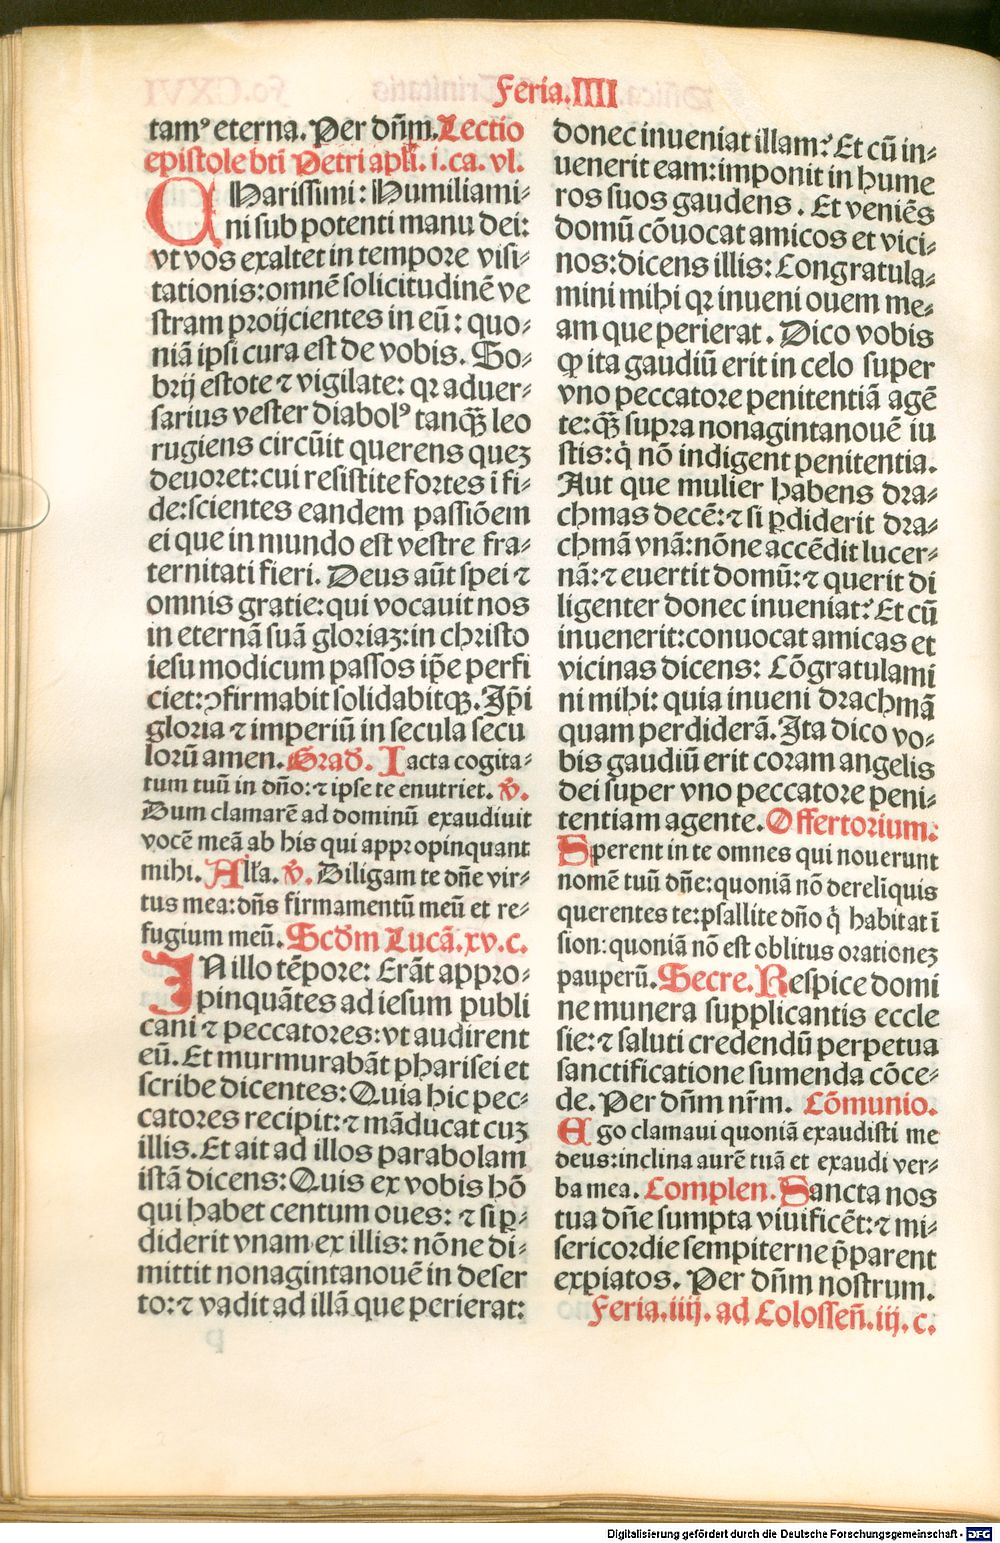 Feria.IIII
tamꝰ eterna. Per dñm. Lectio
epistole bti Petri apli. i. ca. vl.
CHarissimi: Humiliami-
ni sub potenti manu dei:
vt vos exaltet in tempore visi-
tationis: omnē solicitudinē ve
stram proijcientes in eū: quo-
niā ipsi cura est de vobis. So-
brij estote ⁊ vigilate: qꝛ aduer-
sarius vester diabolꝰ tanqȝ leo
rugiens circūit querens queȝ
deuoret: cui resistite fortes ī fi-
de: scientes eandem passiōem
ei que in mundo est vestre fra-
ternitati fieri. Deus aūt spei ⁊
omnis gratie: qui vocauit nos
in eternā suā gloriaȝ: in christo
iesu modicum passos ip̄e perfi
ciet: ꝯfirmabit solidabitqȝ. Jp̄i
gloria ⁊ imperiū in secula secu
lorū amen. Grad. Iacta cogita-
tum tuū in dño: ⁊ ipse te enutriet. ℣.
Dum clamarē ad dominū exaudiuit
vocē meā ab his qui appropinquant
mihi. Alla. ℣. Diligam te dñe vir-
tus mea: dñs firmamentū meū et re-
fugium meū. Scdm Lucā. xv. c.
IN illo tēpore: Erāt appro-
pinquātes ad iesum publi
cani ⁊ peccatores: vt audirent
eū. Et murmurabāt pharisei et
scribe dicentes: Quia hic pec-
catores recipit: ⁊ māducat cuȝ
illis. Et ait ad illos parabolam
istā dicens: Quis ex vobis hō
qui habet centum oues: ⁊ si ꝑ-
diderit vnam ex illis: nōne di-
mittit nonagintanouē in deser
to: ⁊ vadit ad illā que perierat:
donec inueniat illam? Et cū in-
uenerit eam: imponit in hume
ros suos gaudens. Et veniēs
domū cōuocat amicos et vici-
nos: dicens illis: Congratula-
mini mihi qꝛ inueni ouem me-
am que perierat. Dico vobis
ꝙ ita gaudiū erit in celo super
vno peccatore penitentiā agē
te: qȝ supra nonagintanouē iu
stis: q̇ nō indigent penitentia.
Aut que mulier habens dra-
chmas decē: ⁊ si ꝑdiderit dra-
chmā vnā: nōne accēdit lucer-
nā: ⁊ euertit domū: ⁊ querit di
ligenter donec inueniat? Et cū
inuenerit: conuocat amicas et
vicinas dicens: Cōgratulami
ni mihi: quia inueni drachmā
quam perdiderā. Ita dico vo-
bis gaudiū erit coram angelis
dei super vno peccatore peni-
tentiam agente. Offertorium.
Sperent in te omnes qui nouerunt
nomē tuū dñe: quoniā nō dereliquis
querentes te: psallite dño q̇ habitat ī
sion: quoniā nō est oblitus orationeȝ
pauperū. Secre. Respice domi
ne munera supplicantis eccle
sie: ⁊ saluti credendū perpetua
sanctificatione sumenda cōce-
de. Per dñm nr̄m. Cōmunio.
Ego clamaui quoniā exaudisti me
deus: inclina aurē tuā et exaudi ver-
ba mea. Complen. Sancta nos
tua dñe sumpta viuificēt: ⁊ mi-
sericordie sempiterne p̄parent
expiatos. Per dñm nostrum.
Feria. iiij. ad Colosseñ. iij. c.
Digitalisierung gefördert durch die Deutsche Forschungsgemeinschaft - DFG